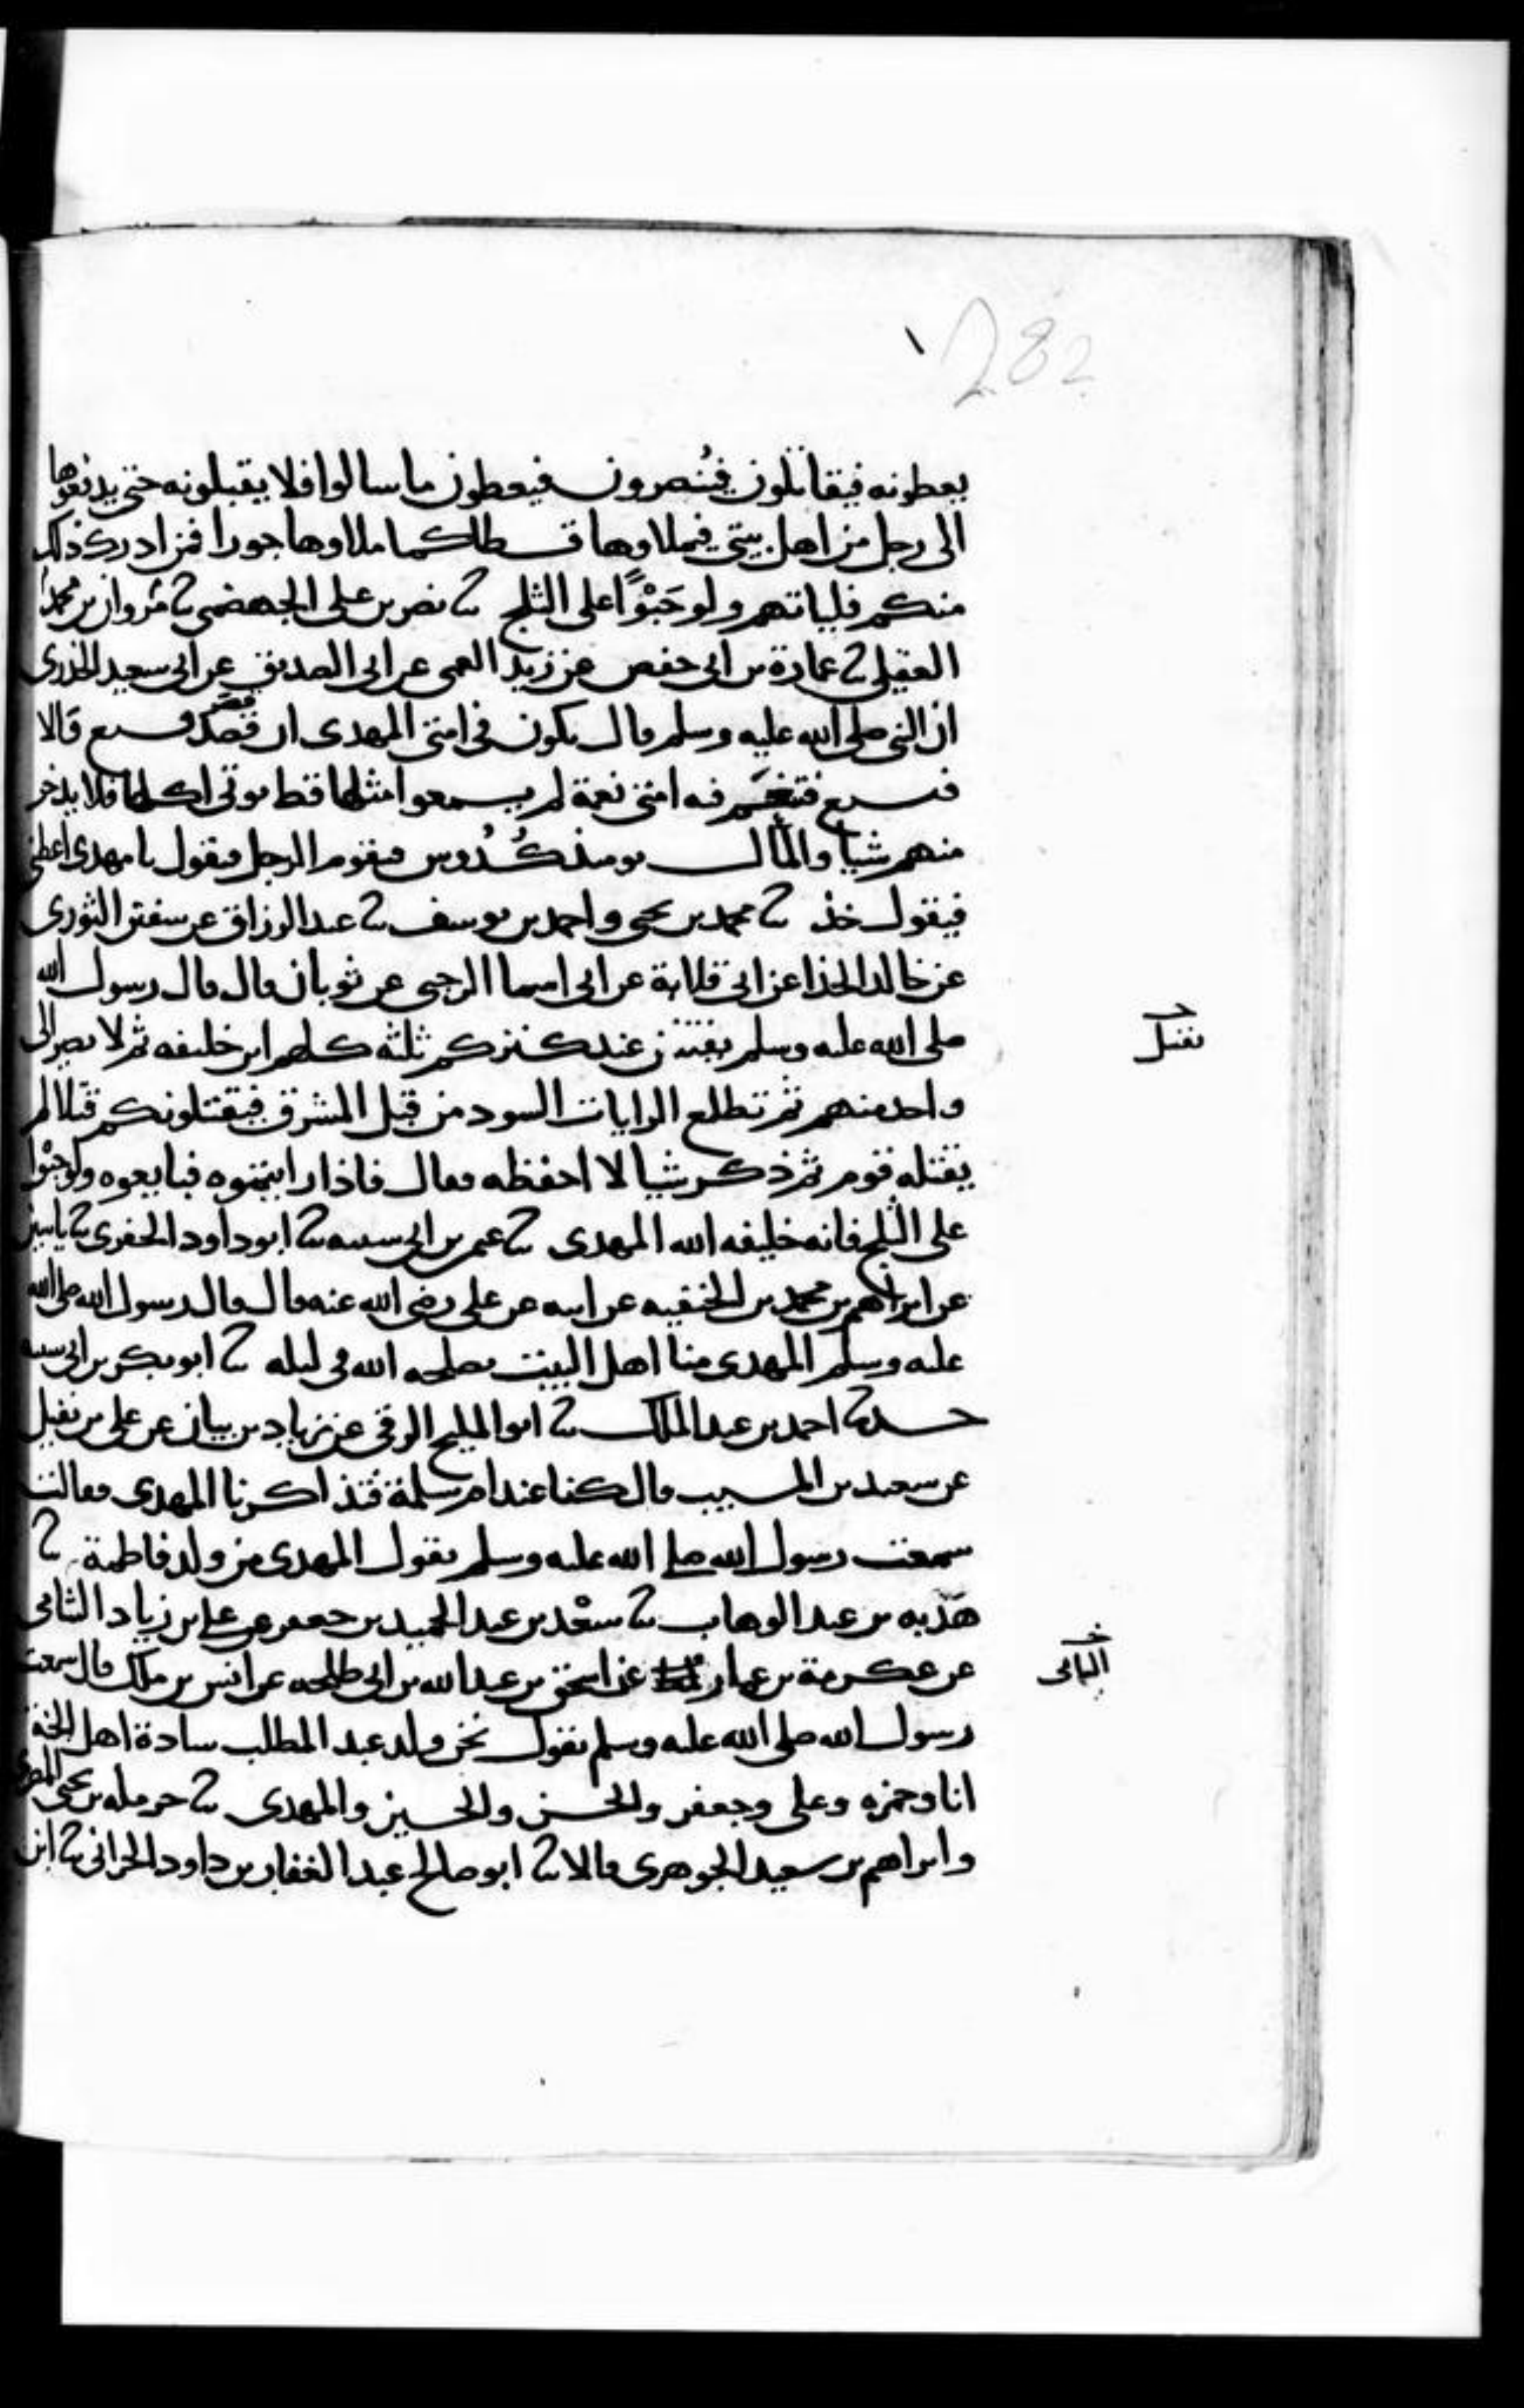 282
يعطونه فيقاتلون فيُنصرون فيعطون ما سالوا فلا يقبلونه حتى يدفعوها
الى رجل من اهل بيتي فيملاوها قسطا كما ملاوها جورا فمن ادرك ذلك
منكم فلياتهم ولو حَبْوًا على الثلج ثنا نصر بن علي الجهضمي ثنا مروان بن محمد
العقيلي ثنا عمارة بن ابي حفص عن زيد العمي عن ابي الصديق عن ابي سعيد الخدري
ان النبي صلى الله عليه وسلم قال يكون في امتي المهدي ان قصر فسبع قالا
فسبع فتنعَم فيه امتي نعمة لم يسمعوا مثلها قط توتي اكلها فلا يدخر
منهم شيا والمال يومئذ كُدُوس فيقوم الرجل فيقول يا مهدي اعطني
فيقول خذ ثنا محمد بن يحيى واحمد بن يوسف ثنا عبد الرزاق عن سفين الثوري
عن خالد الحذا عن ابي قلابة عن ابي اسما الرحبي عن ثوبان قال قال رسول الله
صلى الله عليه وسلم يفتتن عند كنزكم ثلثه كلهم ابن خليفه ثم لا يصير الى
يقتتل
واحد منهم ثم تطلع الرايات السود من قبل المشرق فيقتلونكم قتلا لم
يقتله قوم ثم ذكر شيا لا احفظه فقال فاذا رايتموه فبايعوه ولو حبْوا
على الثلج فانه خليفه الله المهدي ثنا عثمن بن ابي شيبه ثنا ابو داود الحفري ثنا ياسين
عن ابراهيم بن محمد بن الحنفيه عن ابيه عن علي رضي الله عنه قال قال رسول الله صلى الله
عليه وسلم المهدي منا اهل البيت يصلحه الله في ليله ثنا ابو بكر بن ابي شيبه
حدثنا احمد بن عبد الملك ثنا ابو المليح الرقي عن زياد بن بيان عن علي بن نفيل
عن سعيد بن المسيب قال كنا عند ام سلمة فتذاكرنا المهدي فقالت
سمعت رسول الله صلى الله عليه وسلم يقول المهدي من ولد فاطمة ثنا
هَدّيه بن عبد الوهاب ثنا سعْد بن عبد الحميد بن جعفر عن علي بن زياد الثامي
اليمامي
عن عكرمة بن عمار عن اسحق بن عبد الله بن ابي طلحه عن انس بن ملك قال سمعت
رسول الله صلى الله عليه وسلم يقول نحن ولد عبد المطلب سادة اهل الجنة
انا وحمزه وعلي وجعفر والحسن والحسين والمهدي ثنا حرمله بن يحيى المصري
وابراهيم بن سعيد الجوهري قالا ثنا ابو صالح عبد الغفار بن داود الحراني ثنا ابن